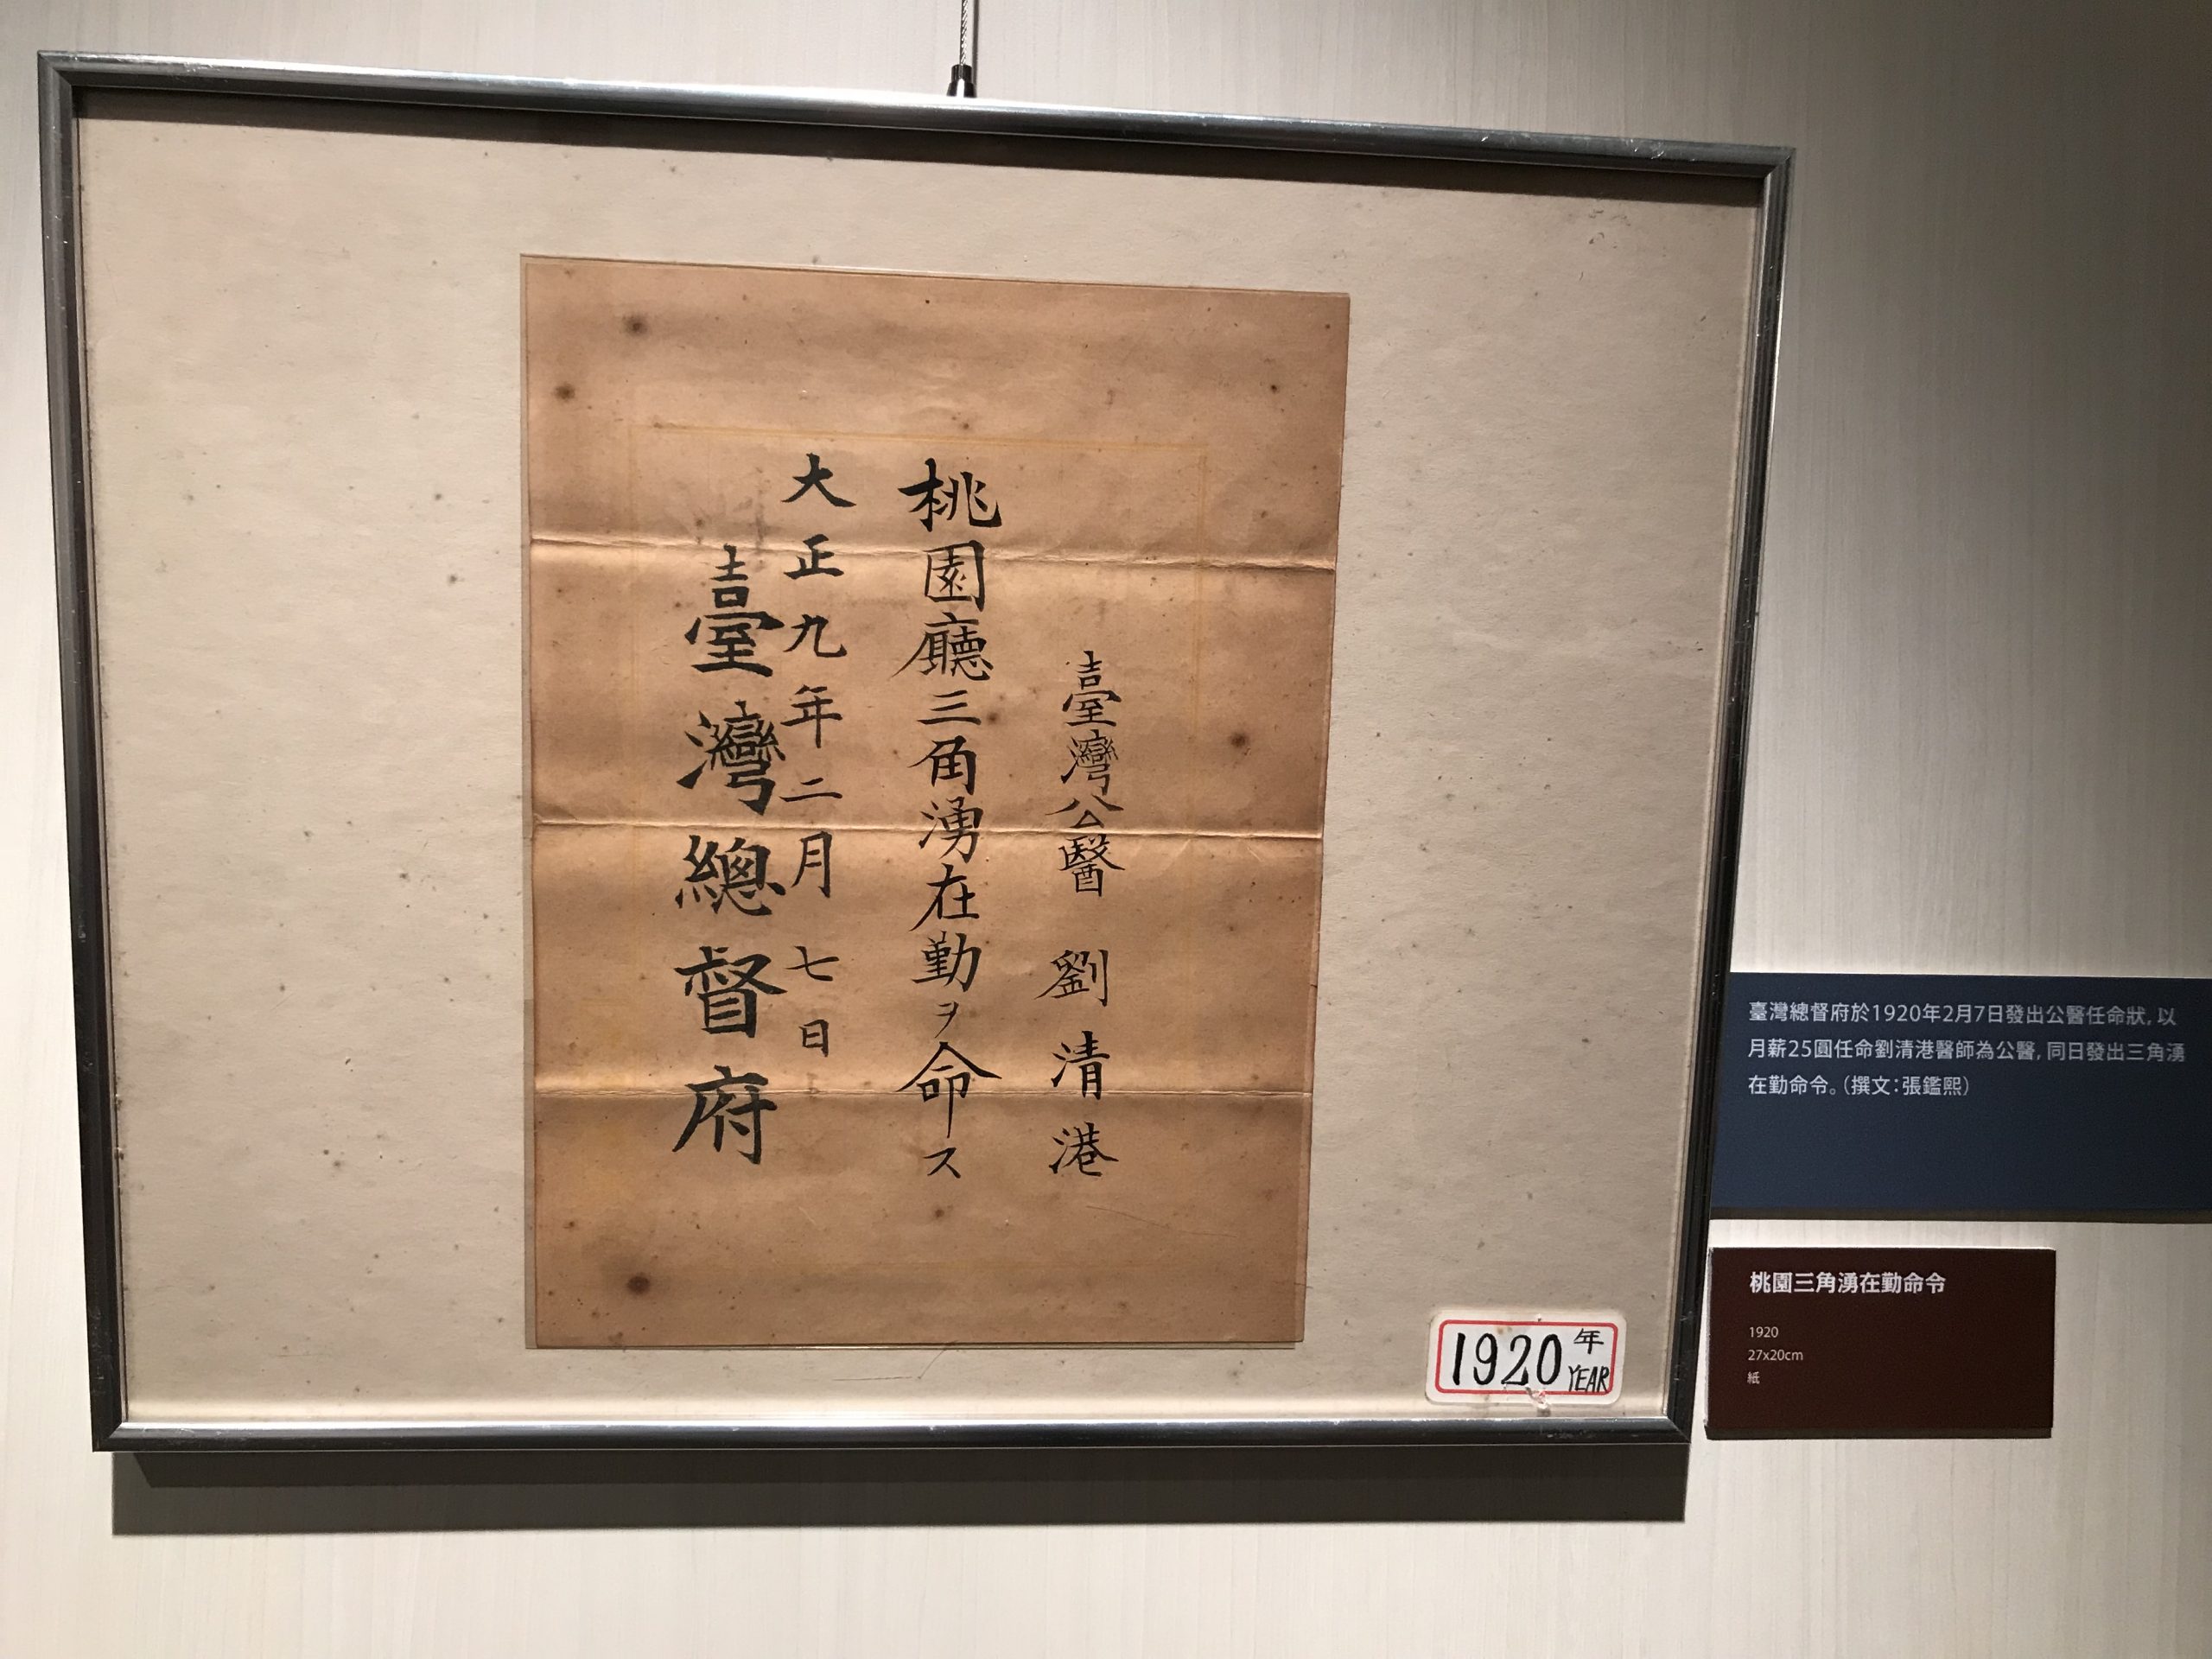 臺灣公醫 劉清港
桃園廳三角湧在勤ヲ命ス
大正九年二月七日
臺灣總督府
1920年
YEAR
臺灣總督府於1920年2月7日發出公醫任命狀, 以
月薪25圓任命劉清港醫師為公醫, 同日發出三角湧
在勤命令。(撰文:張鑑熙)
桃園三角湧在勤命令
1920
27x20cm
紙